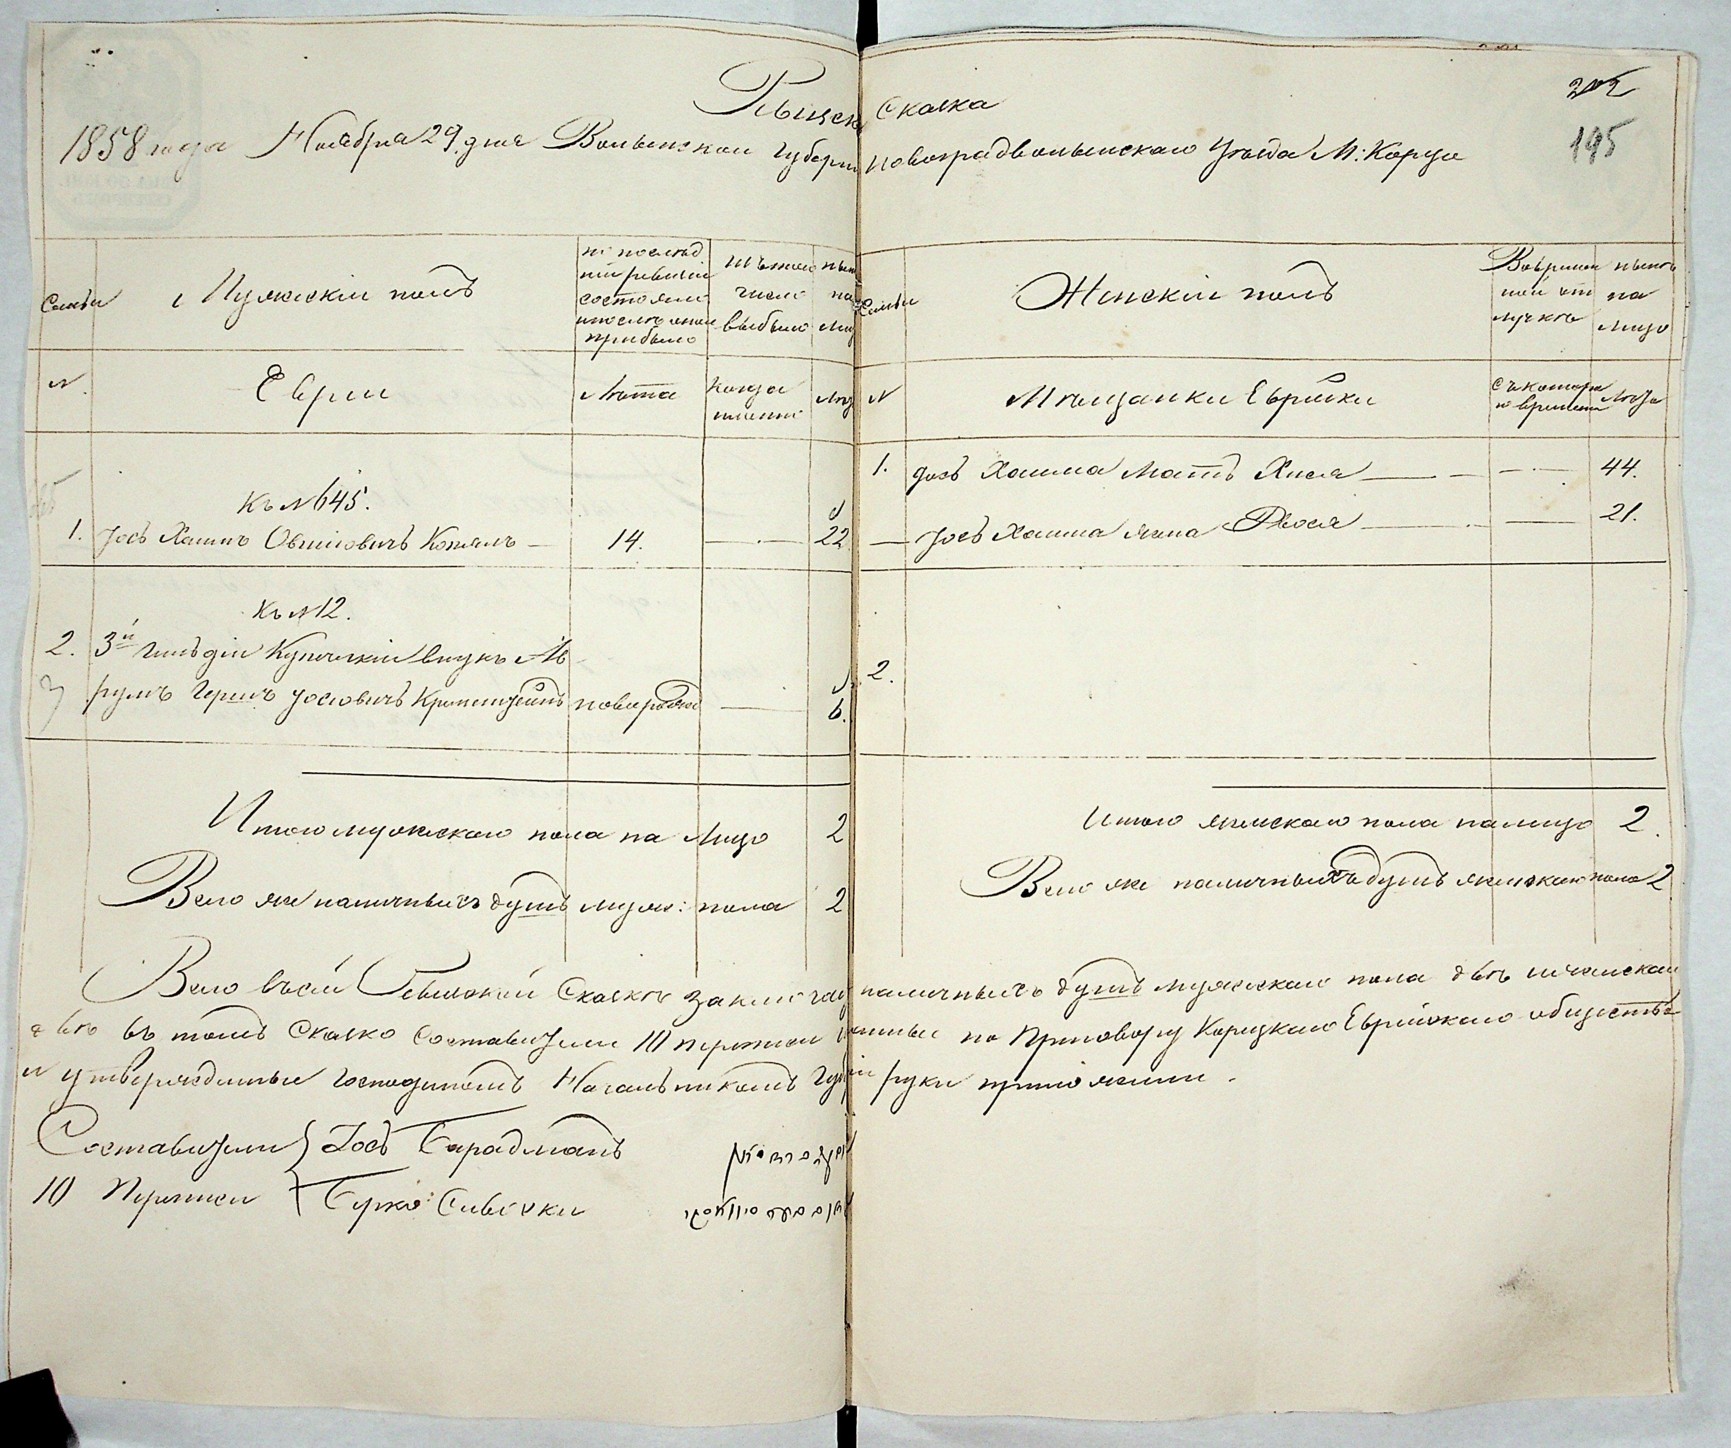 Ревизск Сказка
1858 года Ноября 29. дня Волынской Губерн Новоградволынскаго Уезда М: Корца
195
Семьи
Мужский полъ
по послед
ней ревизии
состояло
и после оной
прибыло
Изъ того
число
выбыло
ныне
на
лиц
Семьи
Женский полъ
Во времен
ной от
лучке
ныне
на
лицо
№.
Евреи
Лета
Когда
именно
Лет
№
Мещанки Еврейки
Съ котора
го времени
Лета
Къ №645.
1. Іосъ Хаимъ Овшиовичъ Коваль 14. 22
1. Іосъ Хаима Мать Хися 44.
Іосъ Хаима жена Рейся 21.
Къ №12.
2. 3й гильдии Купеческий внукъ Ав
румъ Гершъ Іосіовичъ новорожд 6.
2.
Итого мужескаго пола на лицо 2
Всего же наличныхъ душъ муж: пола 2
Итого женскаго пола на лицо 2.
Всего же наличныхъ душъ женскаго пола 2
Всего въ сей Ревизской Сказке заключает наличныхъ душъ мужескаго пола две женскаго
две въ томъ Сказко Составители 10 переписи по Приговору Корецкаго Еврейскаго общества
и утвержденные Господиномъ Начальникомъ Губернии руки приложили.
Составители } Іось
10 Переписи